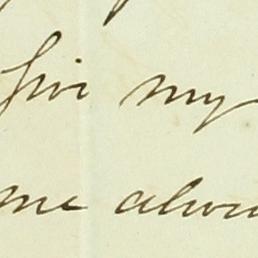 give my
me alwa